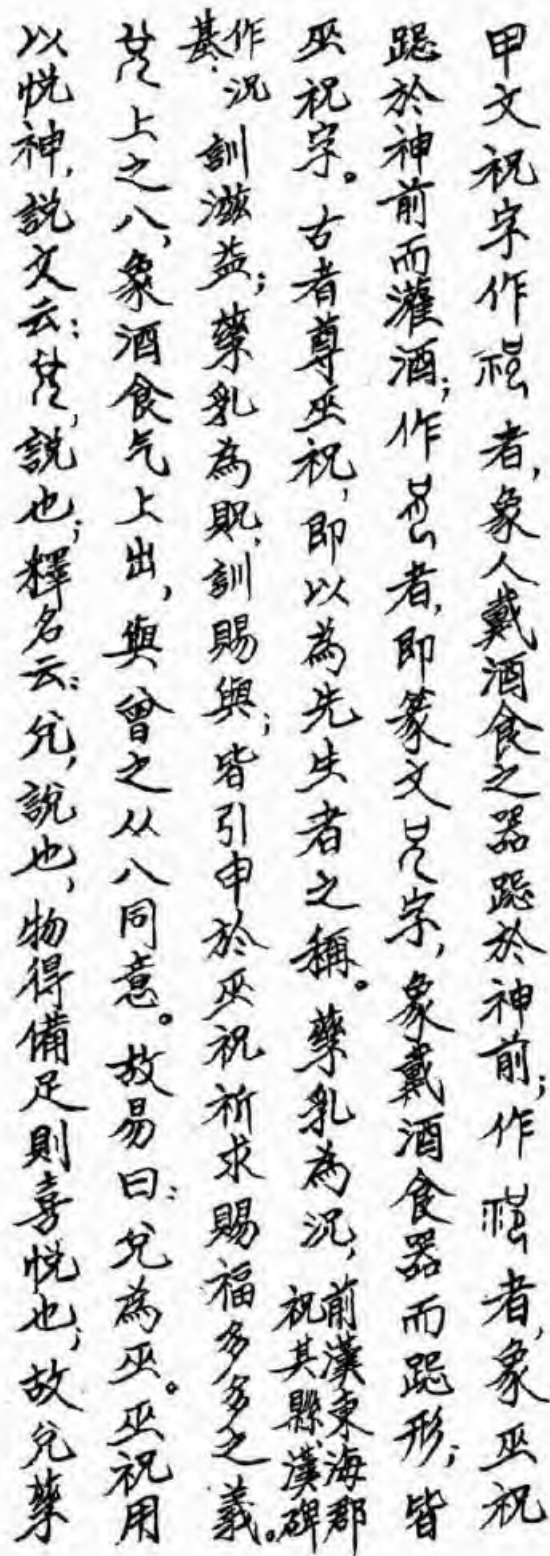 甲文祝字作者，象人戴酒食之器跽於神前；作者，象巫祝
跽於神前而灌酒；作者，即篆文字，象戴酒食器而跽形；皆
巫祝字。古者尊巫祝，即以為先生者之稱。孳乳為況，前漢東海郡祝其縣，漢碑
作況基，訓滋益；孳乳為貺，訓賜與；皆引申於巫祝祈求賜福多多之義。
上之八，象酒食气上出，與曾之从八同意。故易曰：兌為巫。巫祝用
以悅神，說文云：，說也；釋名云：兌，說也，物得備足則喜悅也；故兌孳